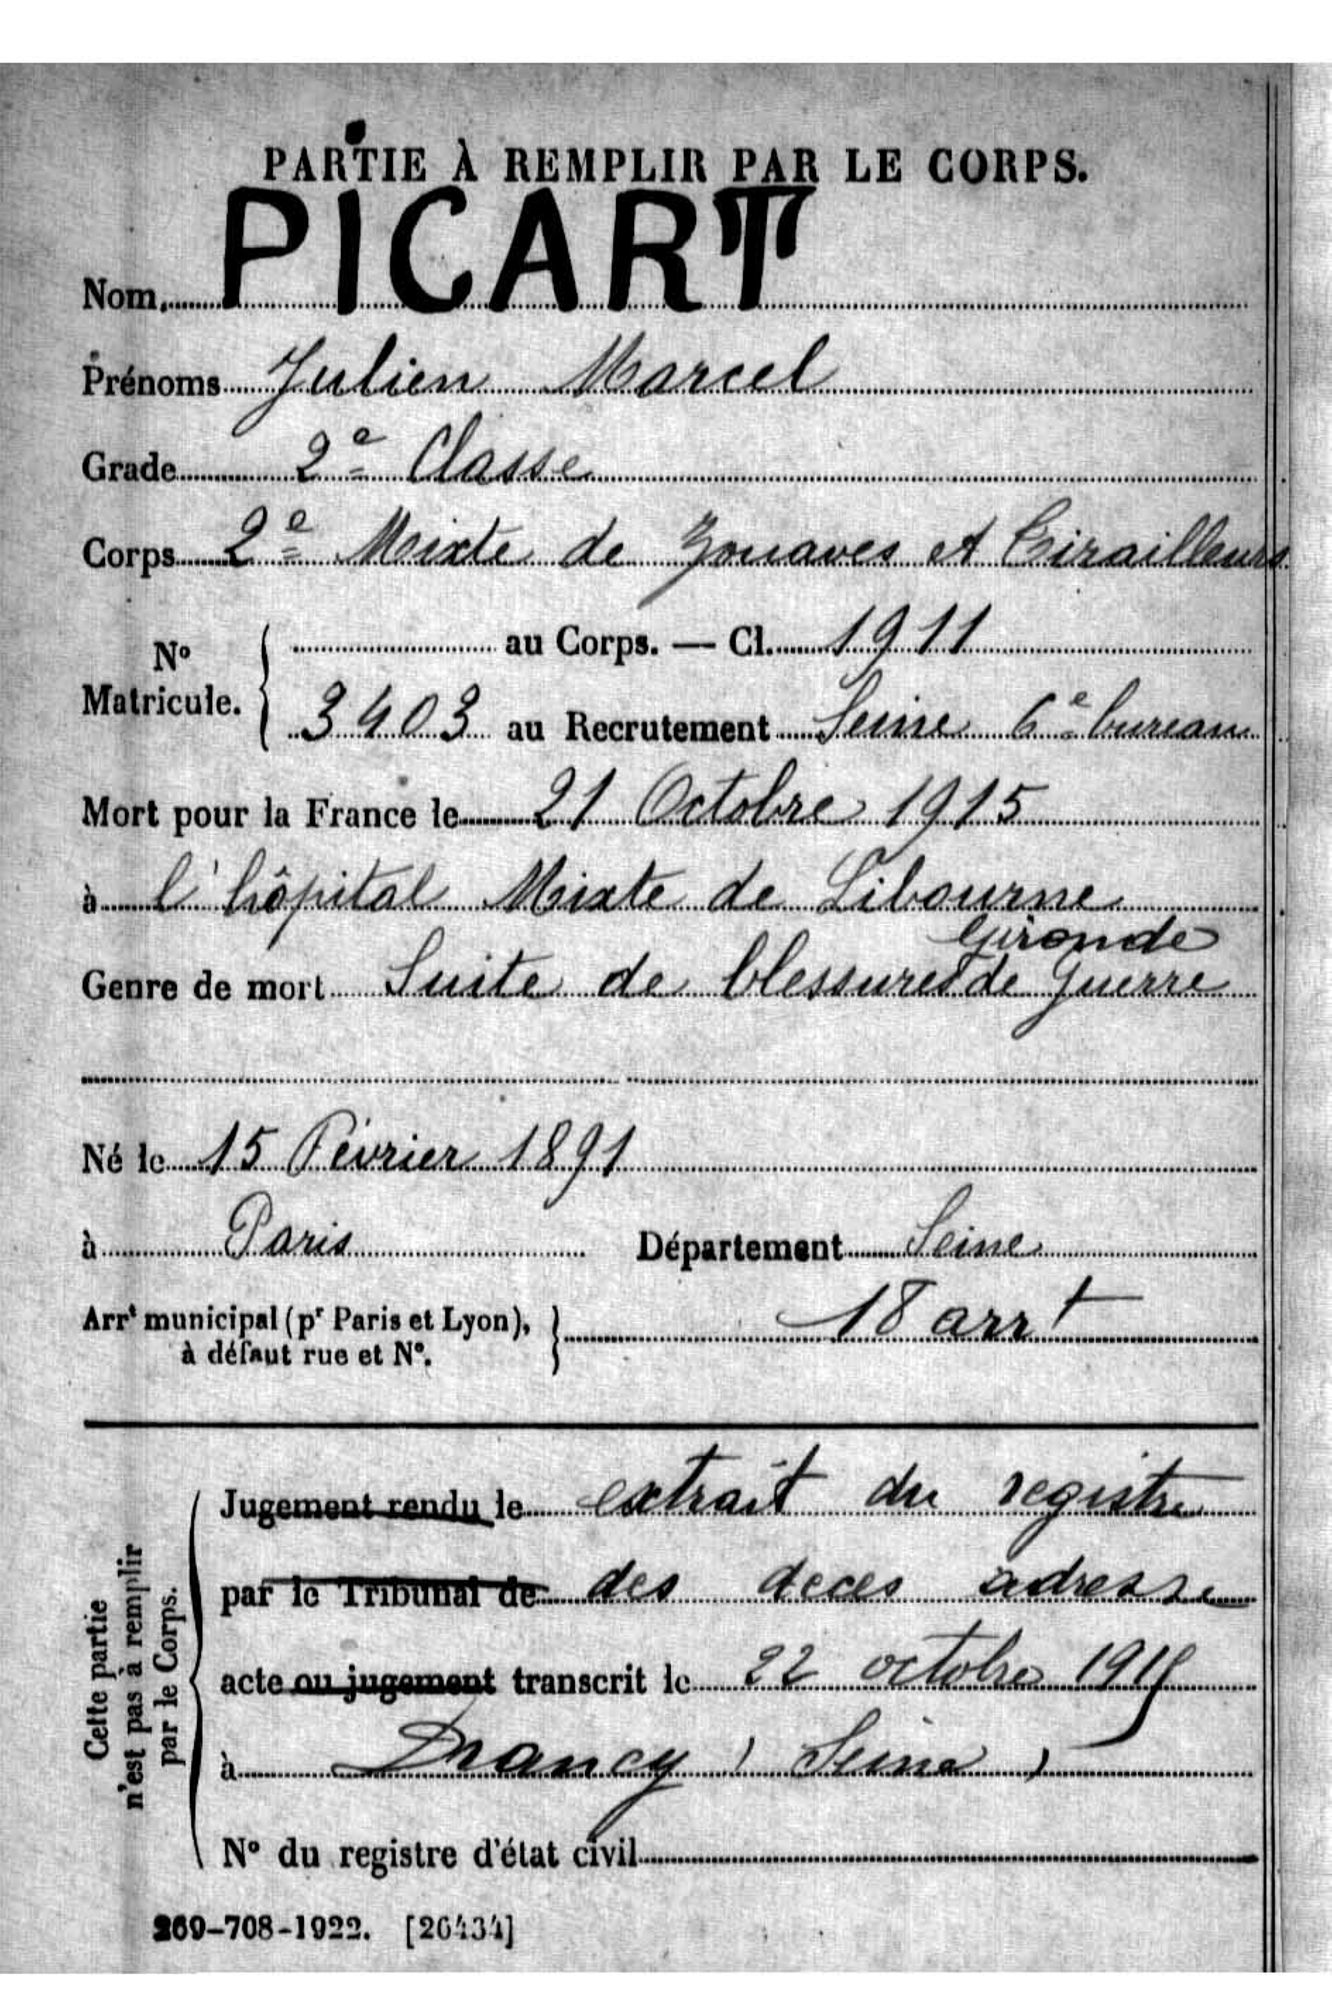 PARTIE À REMPLIR PAR LE CORPS.
Nom. PICART
Prénoms Julien Marcel
Grade 2e Classe
Corps 2e Mixte de Zouaves et Tirailleurs
No Matricule. { au Corps. — Cl. 1911
3403 au Recrutement Seine 6e bureau
Mort pour la France le 21 Octobre 1915
à l'hôpital Mixte de Libourne
Gironde
Genre de mort Suite de blessures de Guerre
Né le 15 Février 1891
à Paris Département Seine
Arrt municipal (pr Paris et Lyon), } 18 arrt
à défaut rue et No.
Cette partie
n'est pas à remplir
par le Corps.
Jugement rendu le extrait du registre
par le Tribunal de des deces adresse
acte ou jugement transcrit le 22 octobre 1915
à Drancy (Seine)
No du registre d'état civil
269-708-1922. [26434]